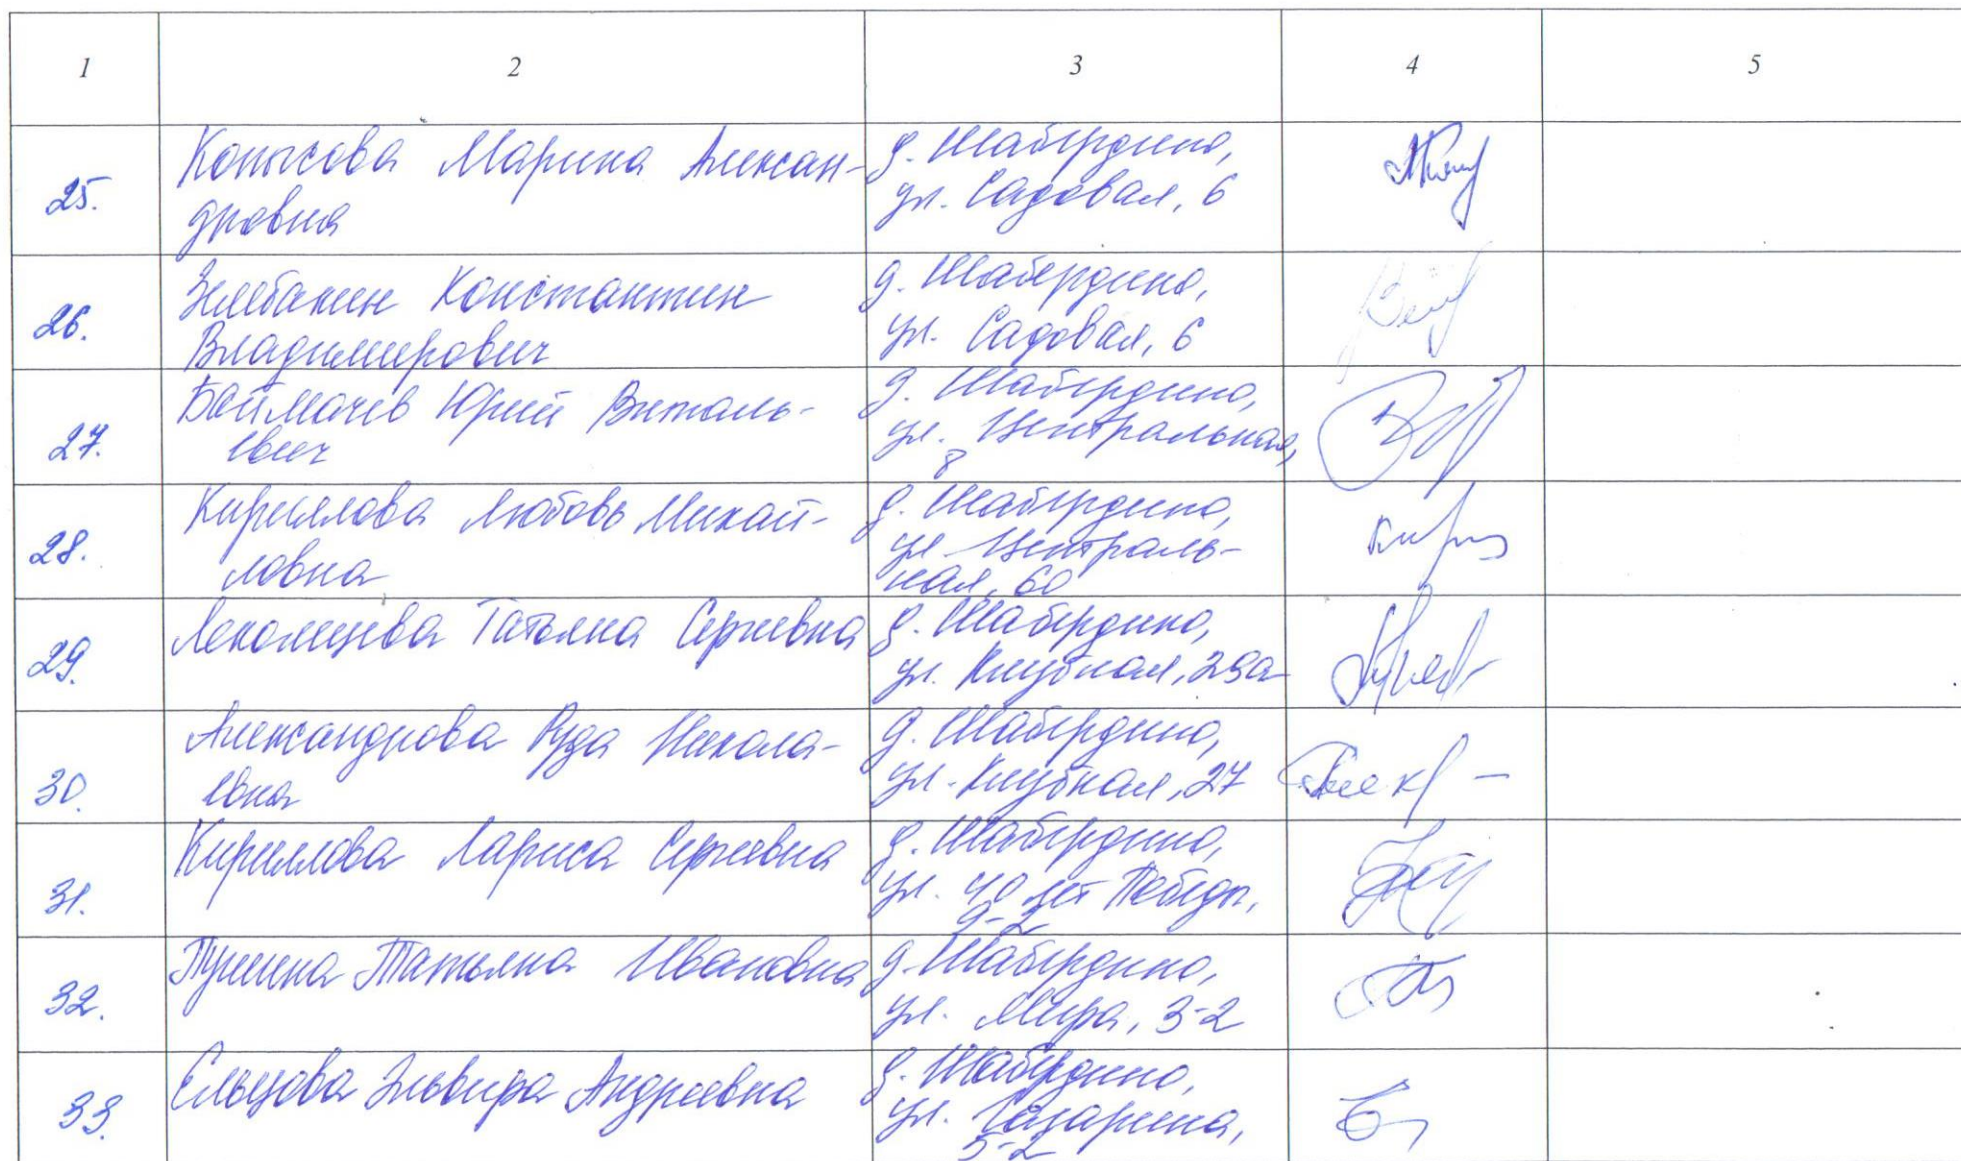 1 2 3 4 5
25. Копысова Марина Алексан-
дровна
д. Шабердино,
ул. Садовая, 6
26. Константин
Владимирович
д. Шабердино,
ул. Садовая, 6
27. Баймачев Юрий Виталь-
евич
д. Шабердино,
ул. Центральная,
8
28. Кириллова Любовь Михай-
ловна
д. Шабердино,
ул. Централь-
ная, 60
29. Лекомцева Татьяна Сергеевна
д. Шабердино,
ул. Клубная, 29а
30. Александрова Рида Никола-
евна
д. Шабердино,
ул. Клубная, 27
31. Кириллова Лариса Сергеевна
д. Шабердино,
ул. 40 лет Победы,
9-2
32. Пушина Татьяна Ивановна
д. Шабердино,
ул. Мира, 3-2
33. Ельцова Эльвира Андреевна
д. Шабердино,
ул. Гагарина,
5-2